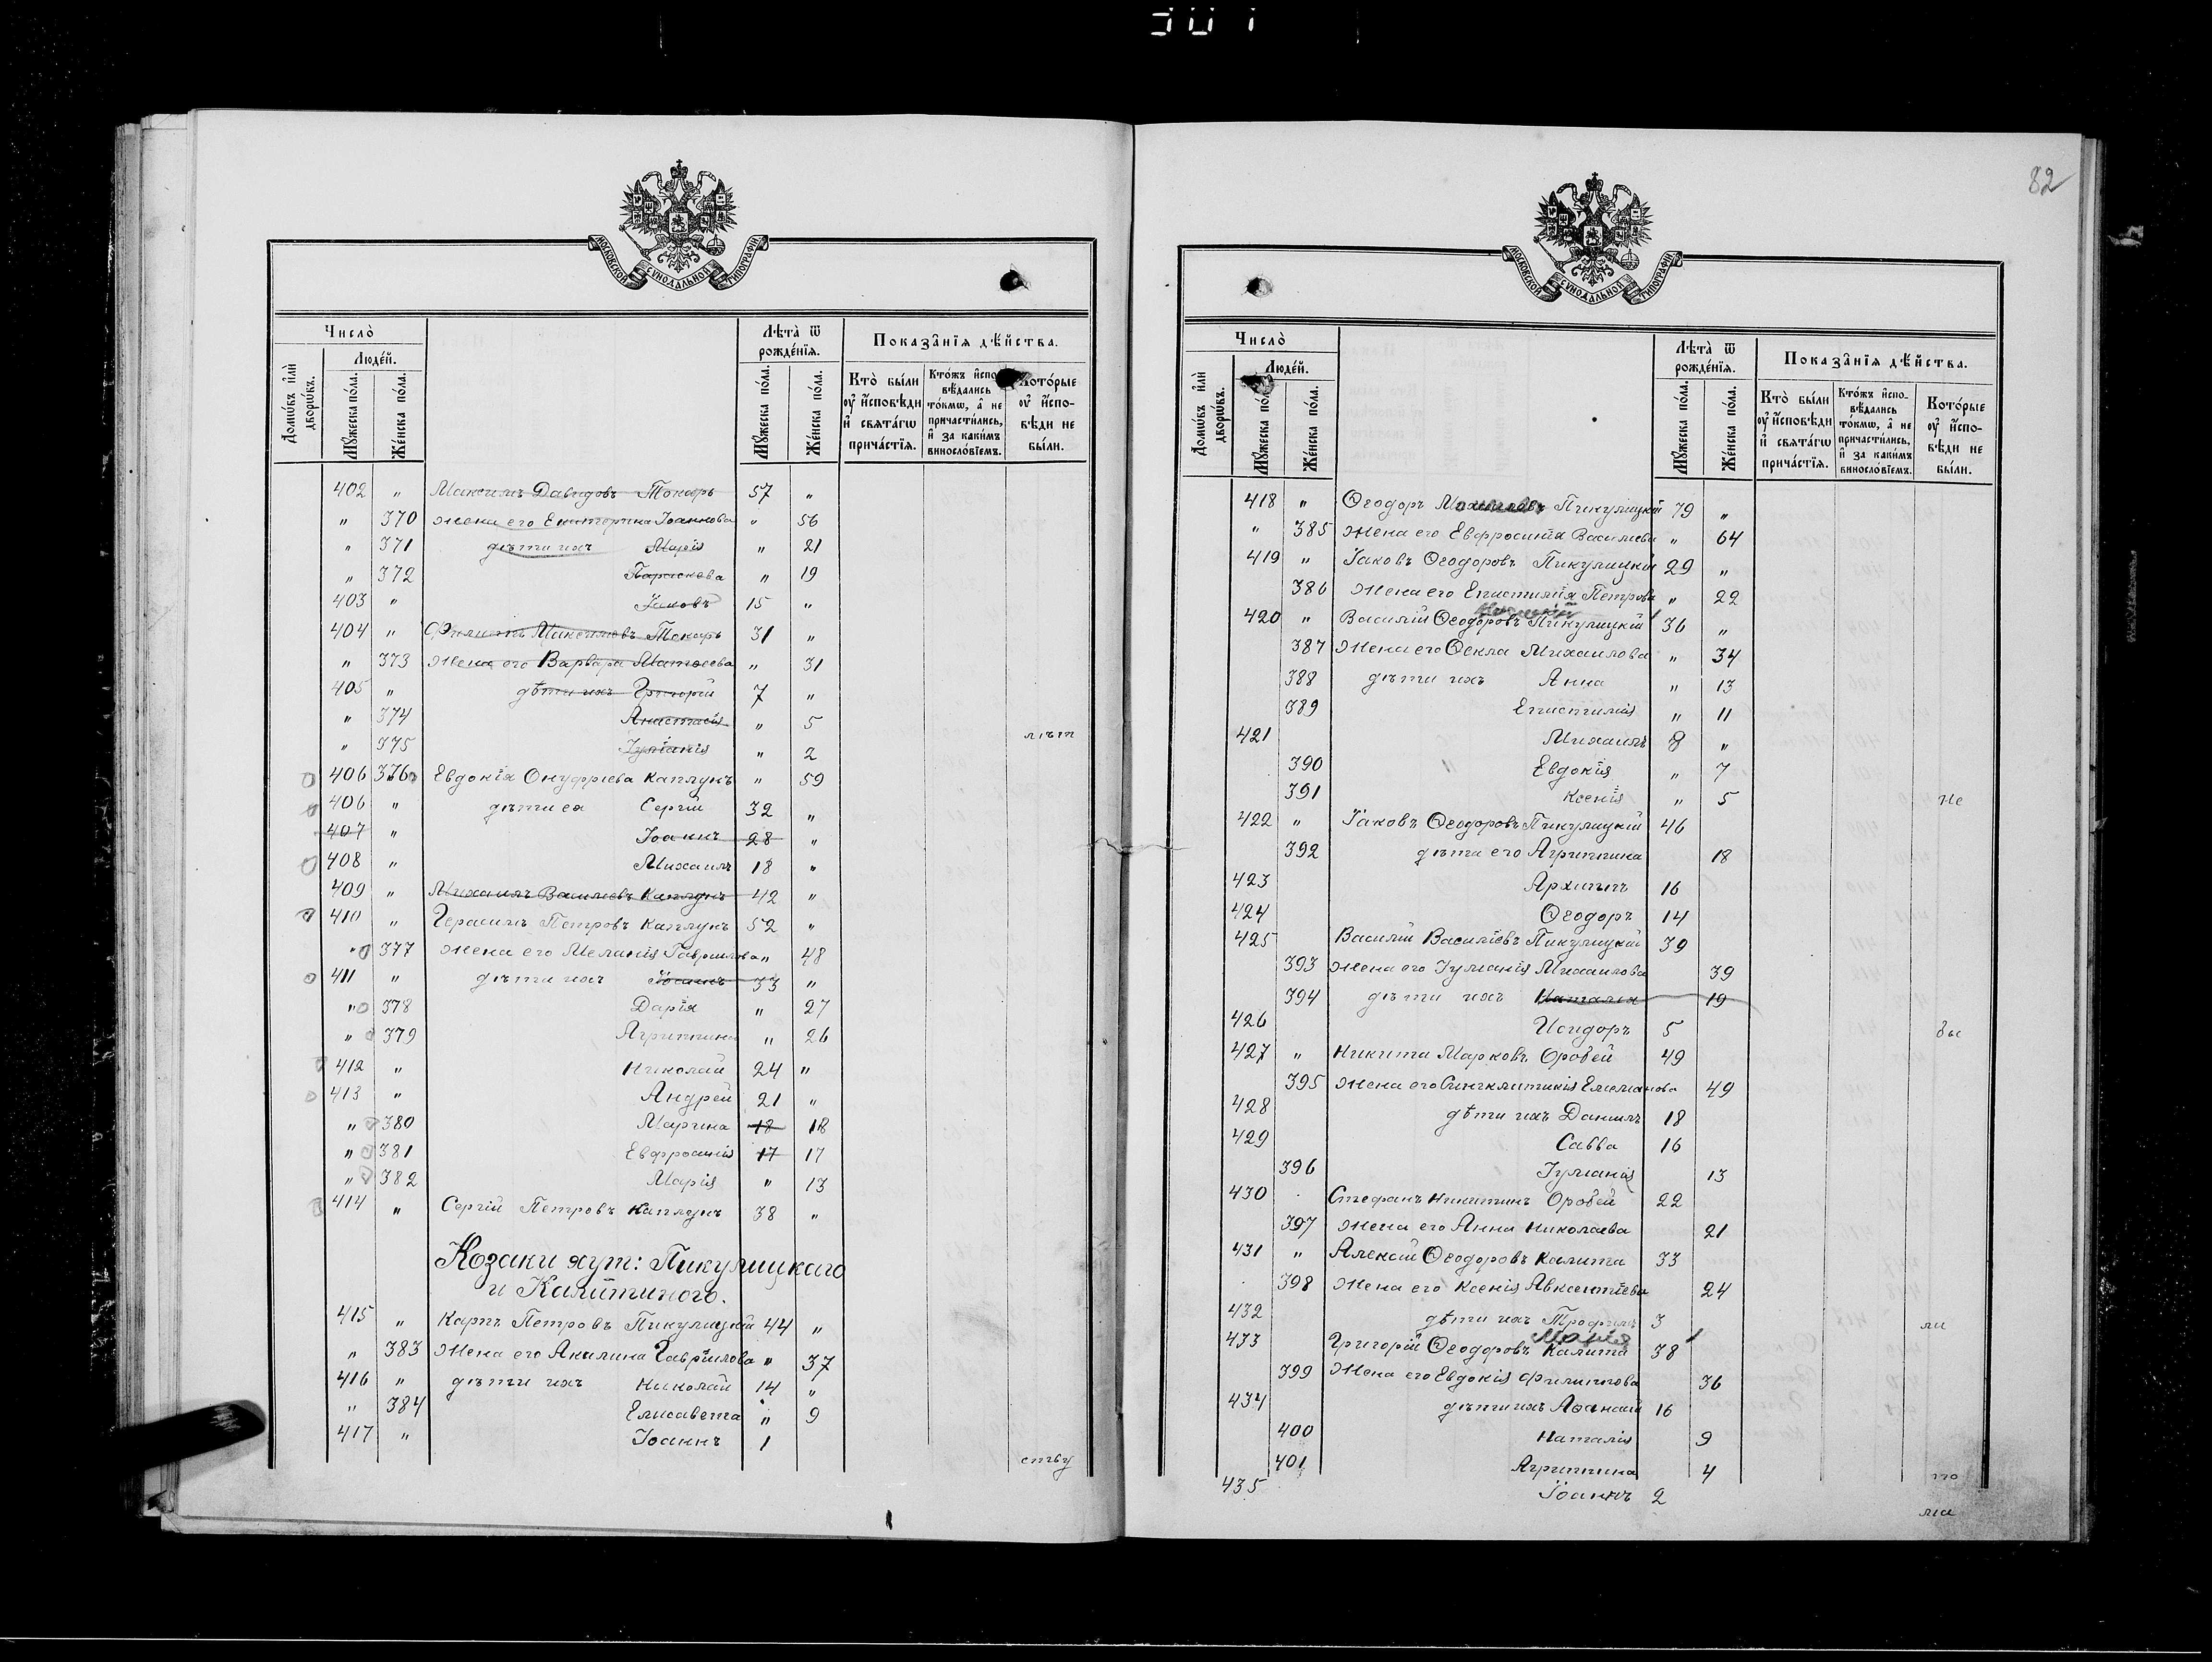 82
МОСКОВСКОЙ СѴНОДАЛЬНОЙ ТИПОГРАФІИ
Число̀
Людéй.
Домѡ́въ и҆лѝ дворѡ́въ.
Мꙋ́жеска по́ла.
Жéнска по́ла.
Лѣта̀ ѿ рождéнїѧ.
Мꙋ́жеска по́ла.
Жéнска по́ла.
Показа̑нїѧ дѣ́йства.
Кто̀ бы́ли оу҆ и҆́сповѣди и҆ свѧта́гѡ прича́стїѧ.
Кто́жъ и҆спо-вѣ́дались то́кмѡ, а҆ не причасти́лись, и҆ за каки́мъ винослóвїемъ.
Кото́рые оу҆ и҆́спо-вѣди не бы́ли.
402 " Максимъ Давидовъ Токарь 57 "
" 370 жена его Екатерина Іоаннова " 56
" 371 дѣти ихъ Марія " 21
" 372 Параскева " 19
403 " Іаковъ 15 "
404 " Филиппъ Максимовъ Токарь 31 "
" 373 Жена его Варвара Матѳеева " 31
405 " дѣти ихъ Григорій 7 "
" 374 Анастасія " 5
" 375 Іуліанія " 2
лѣт
406 376 Евдокія Онуфріева Каплунъ " 59
406 " дѣти ея Сергій 32 "
407 " Іоаннъ 28 "
408 " Михаилъ 18 "
409 " Михаилъ Василіевъ Каплунъ 42 "
410 " Герасимъ Петровъ Каплунъ 52 "
" 377 жена его Меланія Гавриилова " 48
411 " дѣти ихъ Іоаннъ 33 "
" 378 Дарія " 27
" 379 Агриппина " 26
412 " Николай 24 "
413 " Андрей 21 "
" 380 Марина 18 18
" 381 Евфросинія 17 17
" 382 Марія " 13
414 " Сергій Петровъ Каплунъ 38 "
Козаки хут: Пикулицкаго
и Калитиного.
415 " Карпъ Петровъ Пикулицкій 44 "
" 383 Жена его Акилина Гавріилова " 37
416 " дѣти ихъ Николай 14 "
" 384 Елисавета " 9
417 " Іоаннъ 1
ству
МОСКОВСКОЙ СѴНОДАЛЬНОЙ ТИПОГРАФІИ
Число̀
Людéй.
Домѡ́въ и҆лѝ дворѡ́въ.
Мꙋ́жеска по́ла.
Жéнска по́ла.
Лѣта̀ ѿ рождéнїѧ.
Мꙋ́жеска по́ла.
Жéнска по́ла.
Показа̑нїѧ дѣ́йства.
Кто̀ бы́ли оу҆ и҆́сповѣди и҆ свѧта́гѡ прича́стїѧ.
Кто́жъ и҆спо-вѣ́дались то́кмѡ, а҆ не причасти́лись, и҆ за каки́мъ винослóвїемъ.
Кото́рые оу҆ и҆́спо-вѣди не бы́ли.
418 " Ѳеодоръ Пикулицкій 79 "
" 385 Жена его Евфросинія Василіева " 64
419 " Іаковъ Ѳеодоровъ Пикулицкій 29 "
386 Жена его Епистимія Петрова " 22
420 " Василій Ѳеодоровъ Пикулицкій 36 "
387 Жена его Ѳекла Михаилова " 34
388 дѣти ихъ Анна " 13
389 Епистимія " 11
421 Михаилъ 8 "
390 Евдокія " 7
391 Ксенія " 5
Не
422 " Іаковъ Ѳеодоровъ Пикулицкій 46
392 дѣти его Агриппина 18
423 Архиппъ 16
424 Ѳеодоръ 14
425 Василій Василіевъ Пикулицкій 39
393 Жена его Іуліанія Михаилова 39
394 дѣти ихъ Наталія 19
426 Исидоръ 5
бы
427 " Никита Марковъ Оробей 49
395 Жена его Синклитикія Емеліанова 49
428 дѣти ихъ Даніилъ 18
429 Савва 16
396 Іуліанія 13
430 Стефанъ Никитинъ Оробей 22
397 Жена его Анна Николаева 21
431 " Алексій Ѳеодоровъ Калита 33
398 Жена его Ксенія Авксентіева 24
432 дѣти ихъ Трофимъ 3
ли
Марія
433 Григорій Ѳеодоровъ Калита 38
399 Жена его Евдокія Филиппова 36
434 дѣти ихъ Аѳанасій 16
400 Наталія 9
401 Агриппина 4
по
435 Іоаннъ 2
ма